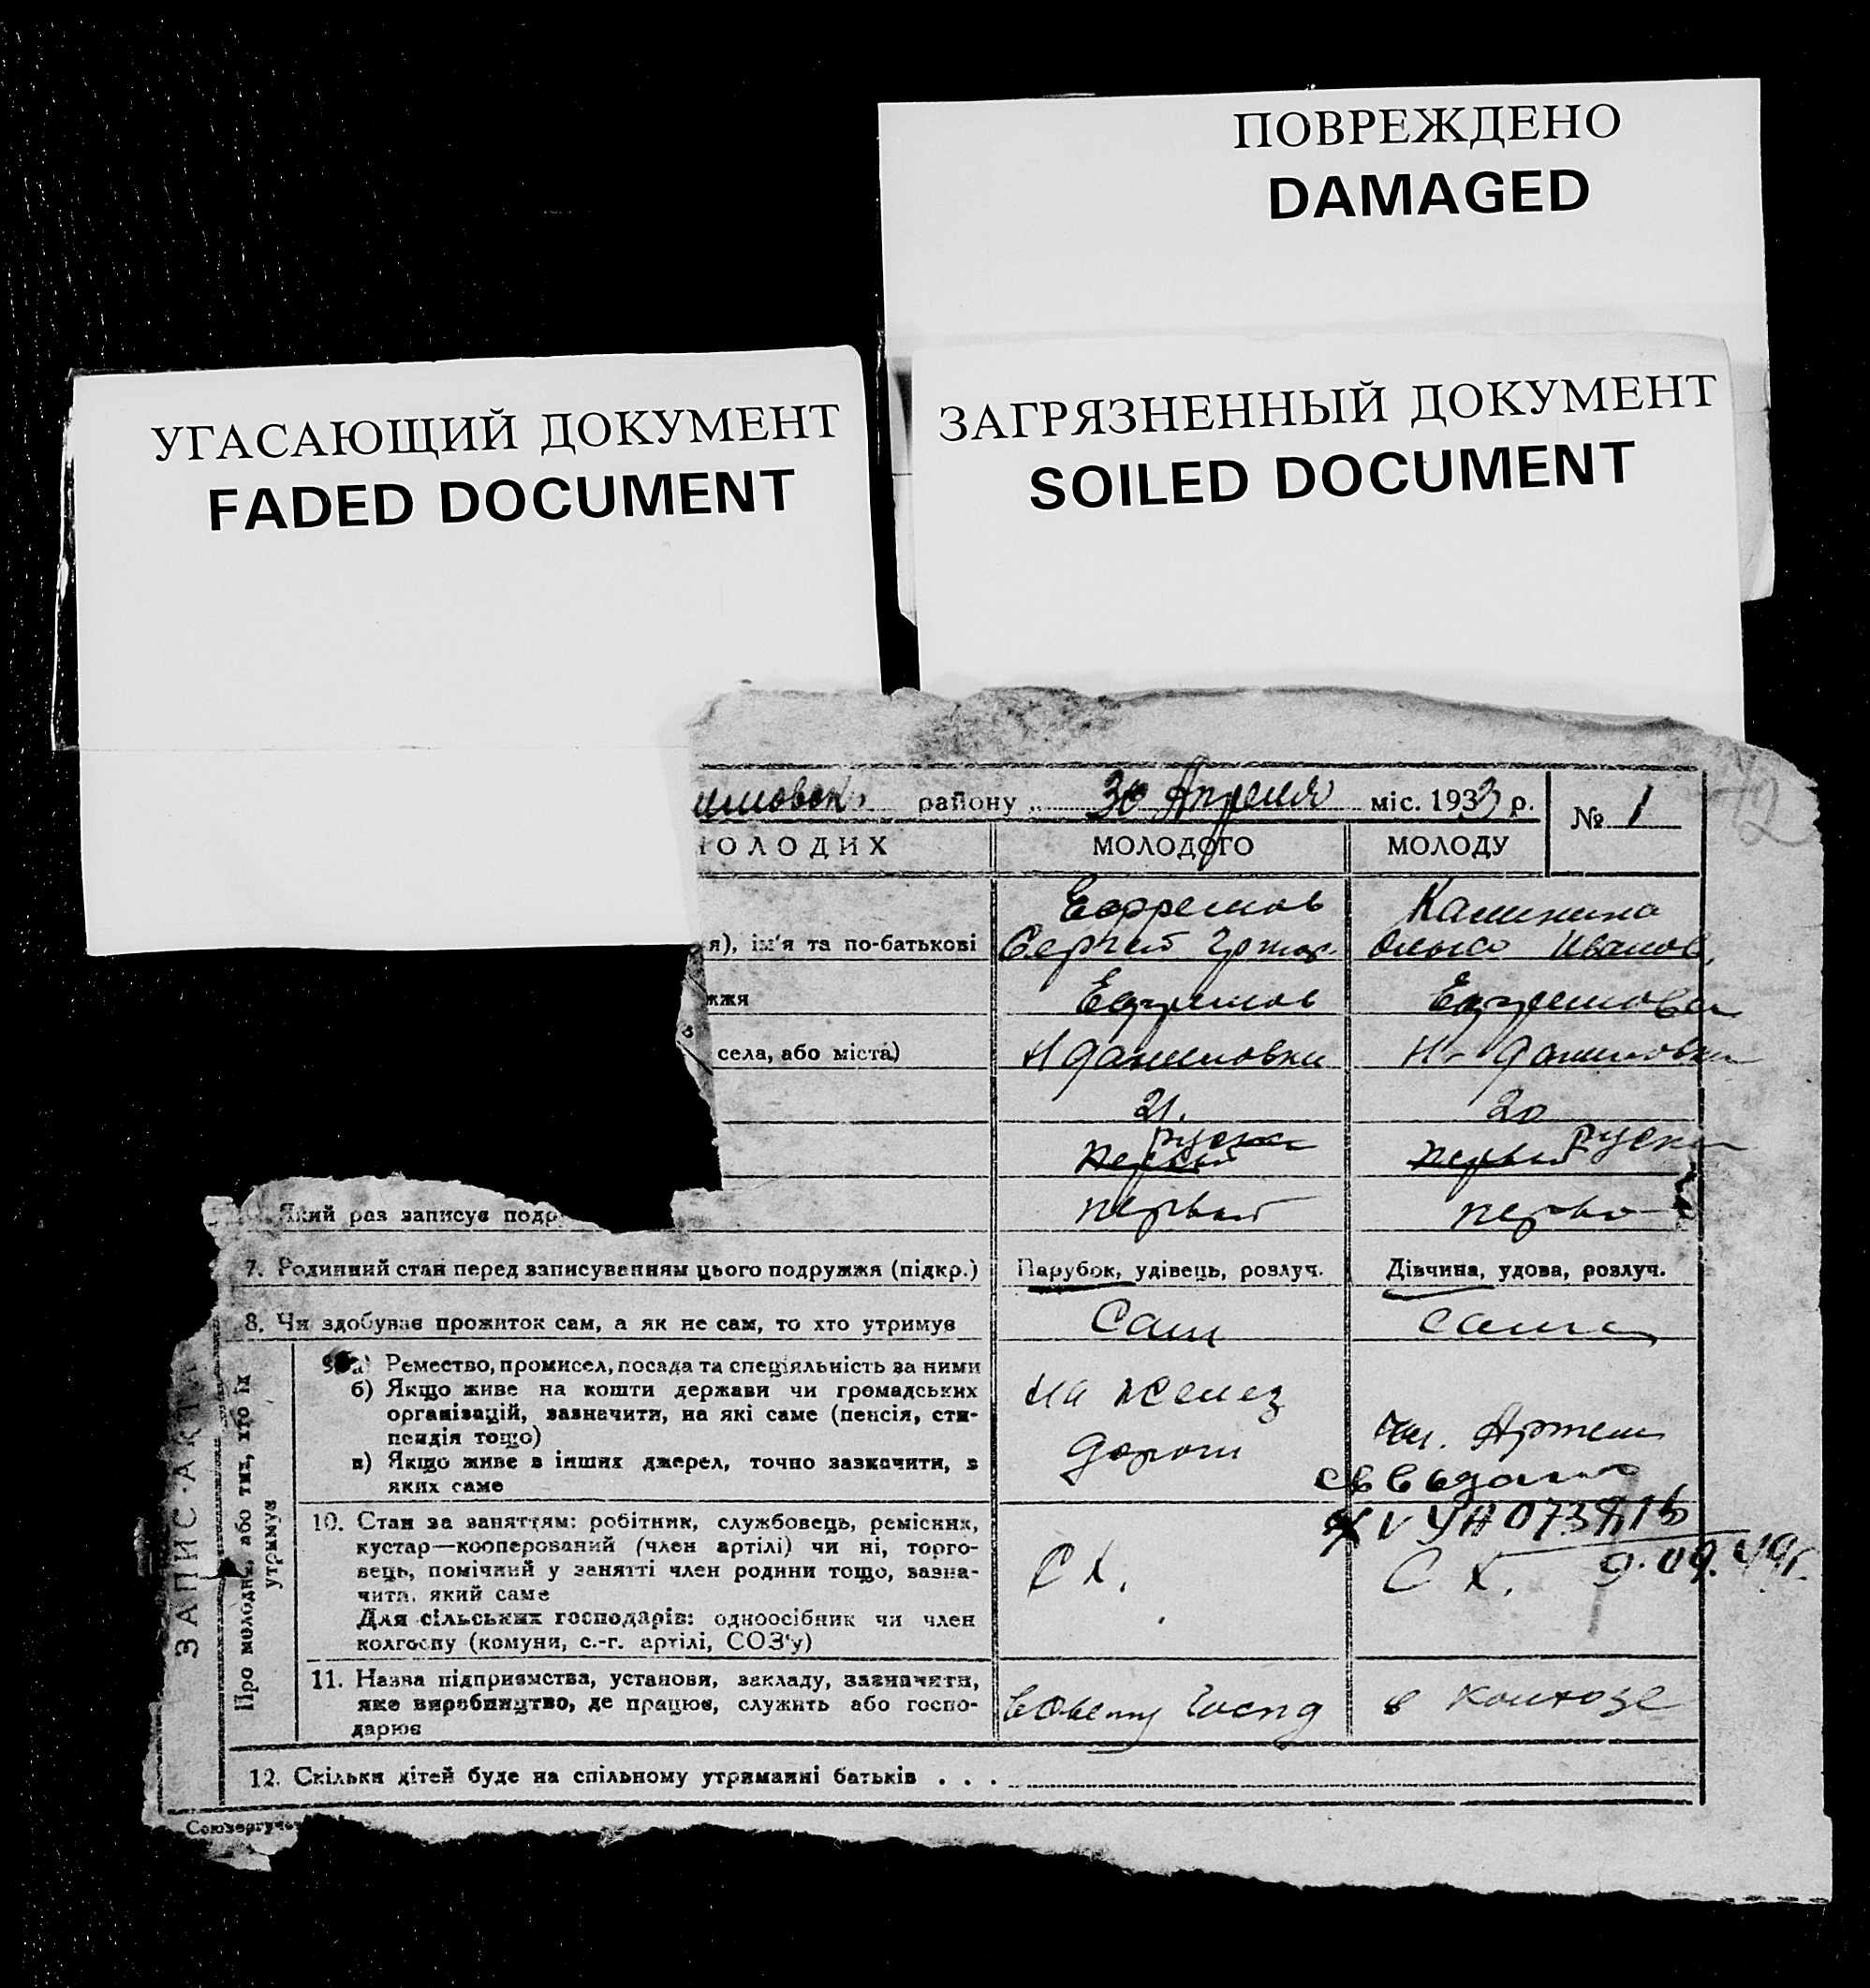 ПОВРЕЖДЕНО
DAMAGED
УГАСАЮЩИЙ ДОКУМЕНТ
FADED DOCUMENT
ЗАГРЯЗНЕННЫЙ ДОКУМЕНТ
SOILED DOCUMENT
району 30 Апреля міс. 1933 р. № 1
72
ОЛОДИХ МОЛОДОГО МОЛОДУ
Ефремов Калинина
я), ім'я та по-батькові Сергей Ольга Иванов.
жжя Ефремов Ефремова
села, або міста) Н Даниловки Н. Даниловки
21. 20
руски руски
первый первый
Який раз записує подр первый
7. Родинний стан перед записуванням цього подружжя (підкр.) Парубок, удівець, розлуч. Дівчина, удова, розлуч.
8. Чи здобував прожиток сам, а як не сам, то хто утримує Сам сама
ЗАПИС АКТ
Про молодих, або тих, хто їх утримує
а) Ремество, промисел, посада та спеціяльність за ними
б) Якщо живе на кошти держави чи громадських
організацій, зазначити, на які саме (пенсія, сти-
пендія тощо)
в) Якщо живе з інших джерел, точно зазначити, з
яких саме
на желез
дороги
Чл. Артели
св выдано
XV УН 073816
9.09.49г.
10. Стан за заняттям: робітник, службовець, реміскик,
кустар—кооперований (член артілі) чи ні, торго-
вець, помічний у занятті член родини тощо, зазна-
чити, який саме
Для сільських господарів: одноосібник чи член
колгоспу (комуни, с.-г. артілі, СОЗ'у)
С Х. С Х.
11. Назва підприємства, установи, закладу, зазначити,
яке виробництво, де працює, служить або госпо-
дарює
в колхозе
12. Скільки дітей буде на спільному утриманні батьків . . .